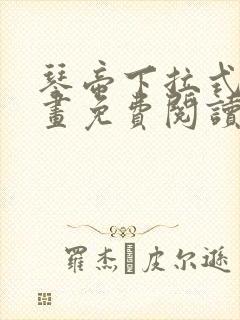 琴帝下拉式
畫免費閱讀
羅杰·皮尔遜